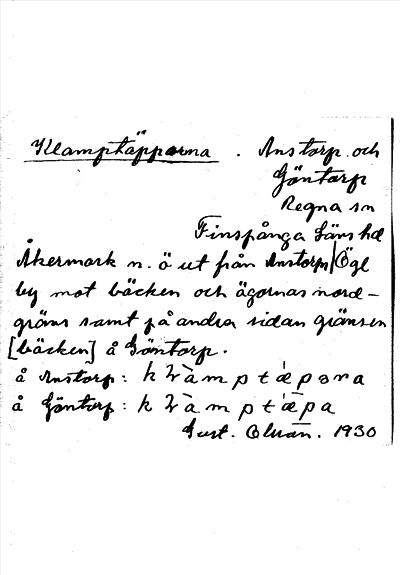 Klamptäpporna . Anstorp och
Göntorp
Regna sn
Finspånga läns hd
Åkermark n. ö ut från Anstorps Ögl
by mot bäcken och ägornas nord-
gräns samt på andra sidan gränsen
[bäcken] å Göntorp.
å Anstorp: k λ̀ a m p t ǽ p ə r a
å Göntorp: k λ̀ a m p t ǽ p a
Gust. 1930